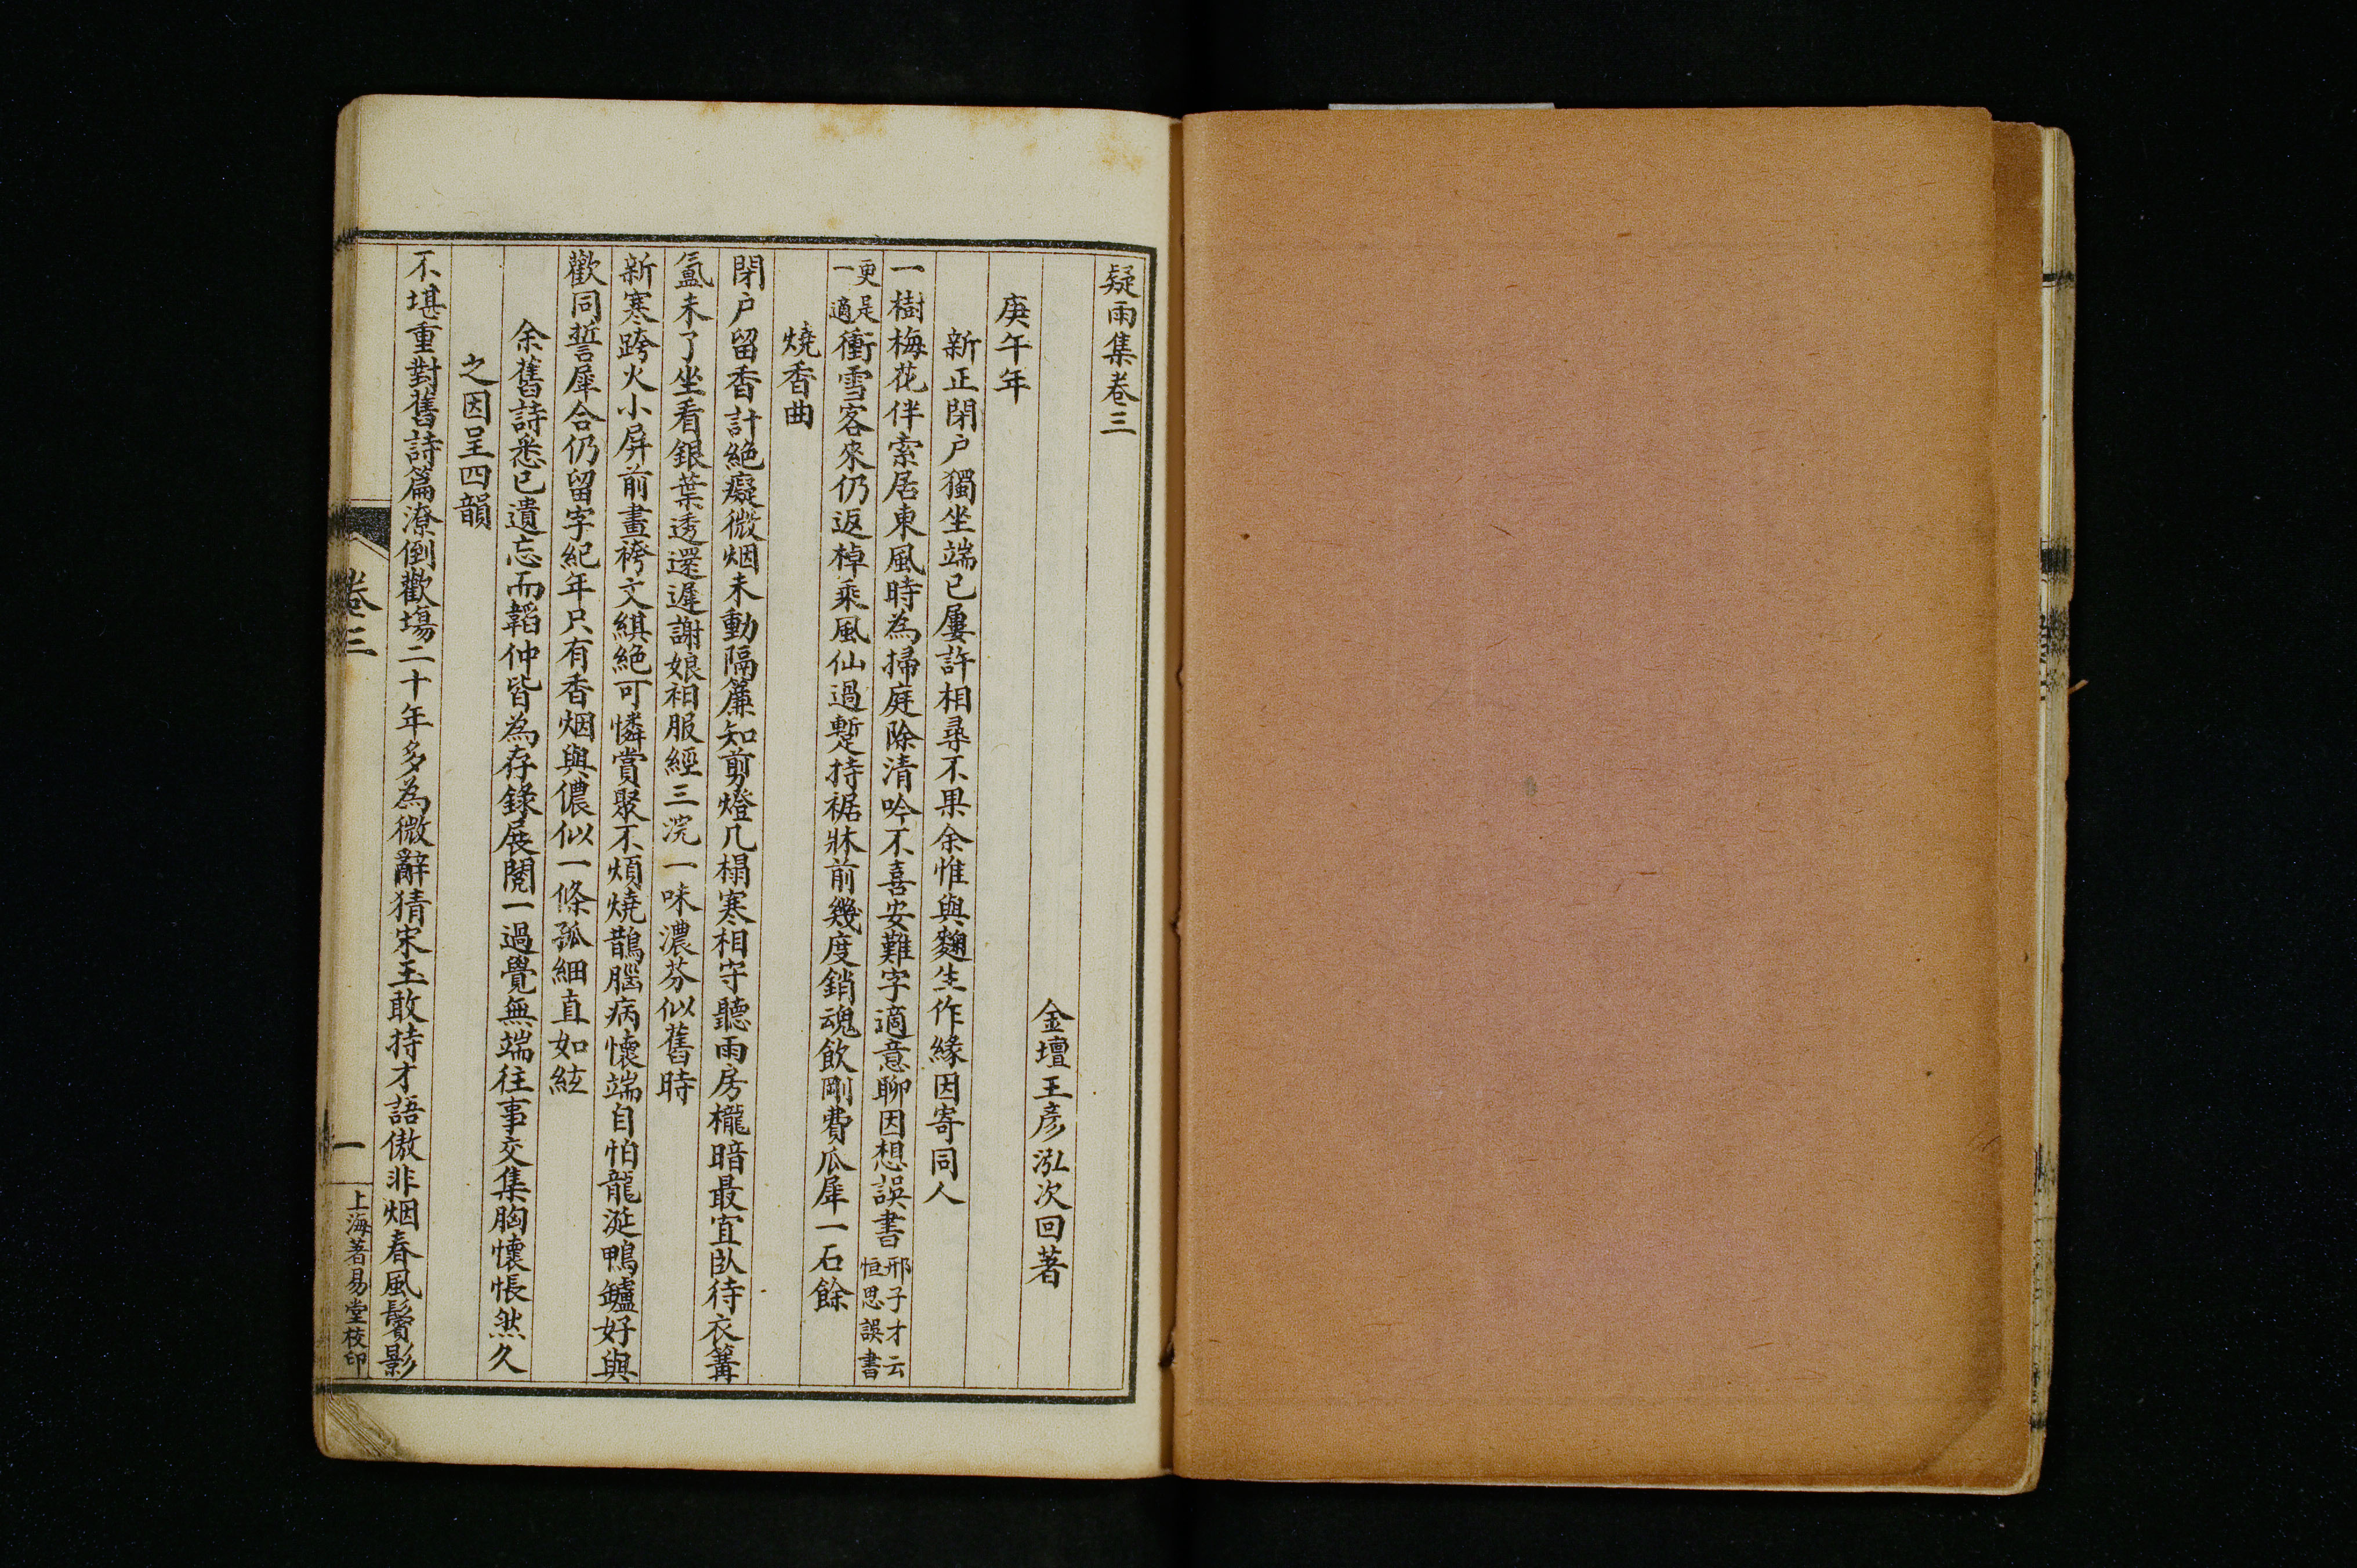 疑雨集卷三
金壇王彥泓次回著
庚午年
新正閉户獨坐端已屢許相尋不果余惟與麴生作緣因寄同人
一樹梅花伴索居東風時為掃庭除清吟不喜安難字適意聊因想誤書邢子才云恒思誤書
更是一適衝雪客來仍返棹乘風仙過暫持裾牀前幾度銷魂飲剛費瓜犀一石餘
燒香曲
閉户留香計絶癡微烟未動隔簾知剪燈几榻寒相守聽雨房櫳暗最宜臥待衣篝
氲未了坐看銀葉透還遲謝娘袙服經三浣一味濃芬似舊時
新寒跨火小屏前畫袴文綦絶可憐賞聚不煩燒鵲腦病懷端自怕龍涎鴨鑪好與
歡同誓犀合仍留字紀年只有香烟與儂似一條孤細直如絃
余舊詩悉已遺忘而韜仲皆為存錄展閱一過覺無端往事交集胸懷悵然久
之因呈四韻
不堪重對舊詩篇潦倒歡塲二十年多為微辭猜宋玉敢持才語傲非烟春風鬢影
卷三
一
上海著易堂校印